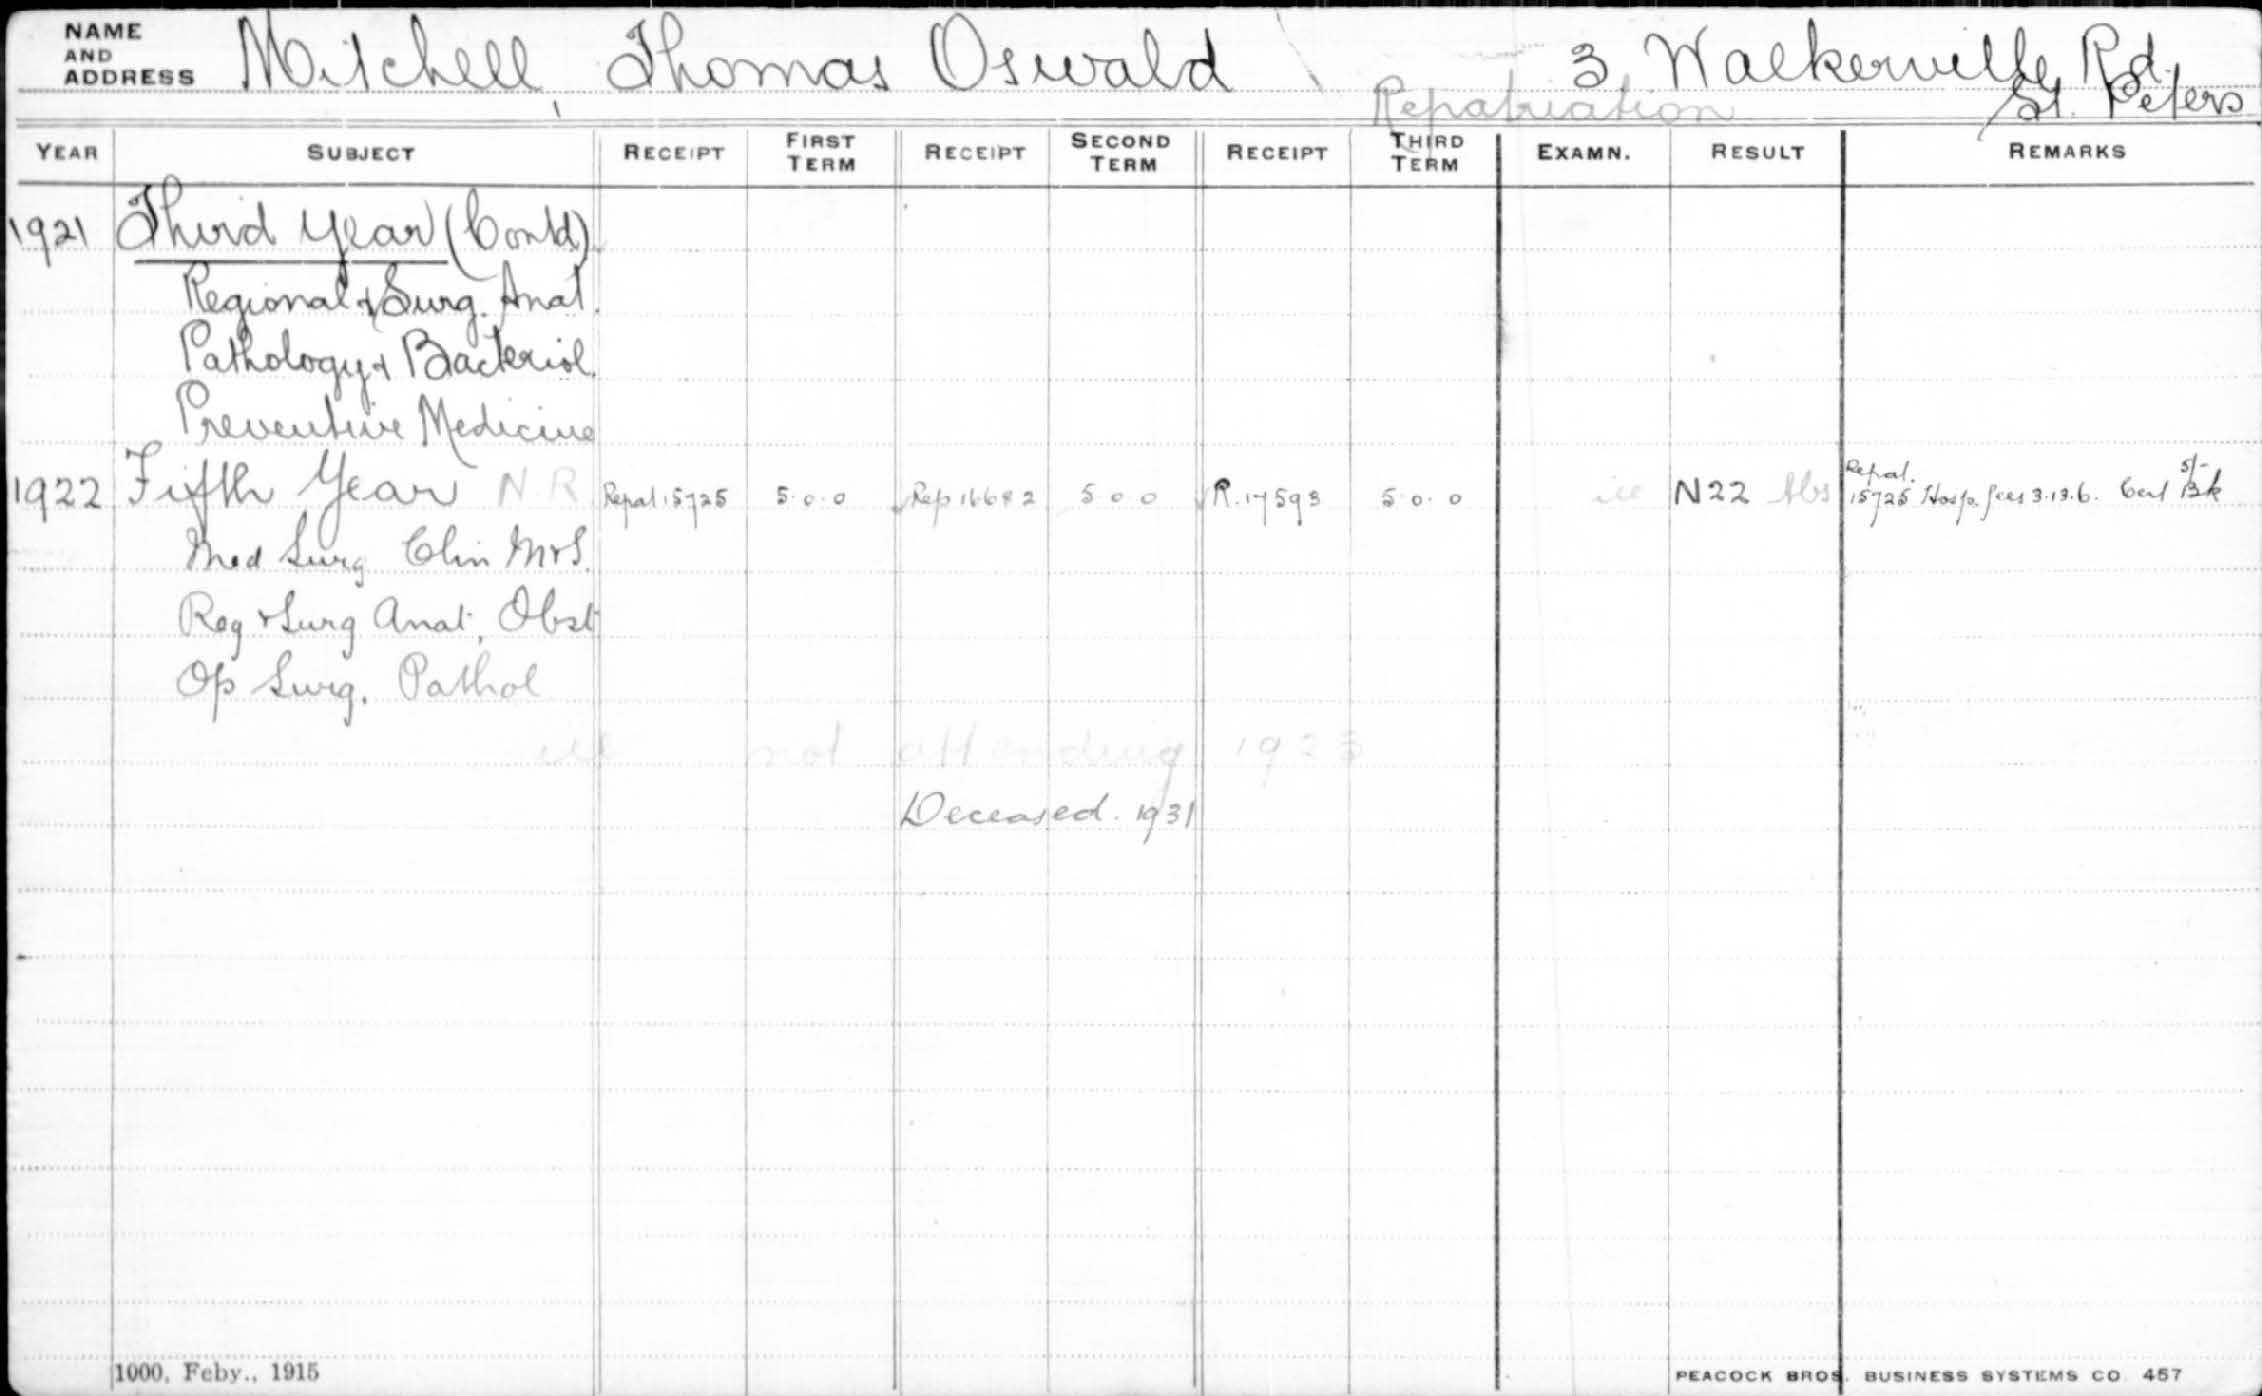 NAME AND ADDRESS Mitchell, Thomas Oswald 3, Walkerville Rd.
Repatriation St. Peters
YEAR SUBJECT RECEIPT FIRST TERM RECEIPT SECOND TERM RECEIPT THIRD TERM EXAMN. RESULT REMARKS
1921 Third Year (Contd)
Regional & Surg. Anat.
Pathology & Bacteriol.
Preventive Medicine
1922 Fifth Year N.R. Repat 15725 5.0.0 Rep 16682 5 0 0 R. 17593 5.0.0 ill N22 Abs Repat. 15725 Hosp. fees 3.13.6. Cert Bk 5/-
Med Surg Clin M & S.
Reg & Surg Anat, Obst
Op Surg. Pathol
ill not attending 1923
Deceased. 1931
1000, Feby., 1915 PEACOCK BROS. BUSINESS SYSTEMS CO 457